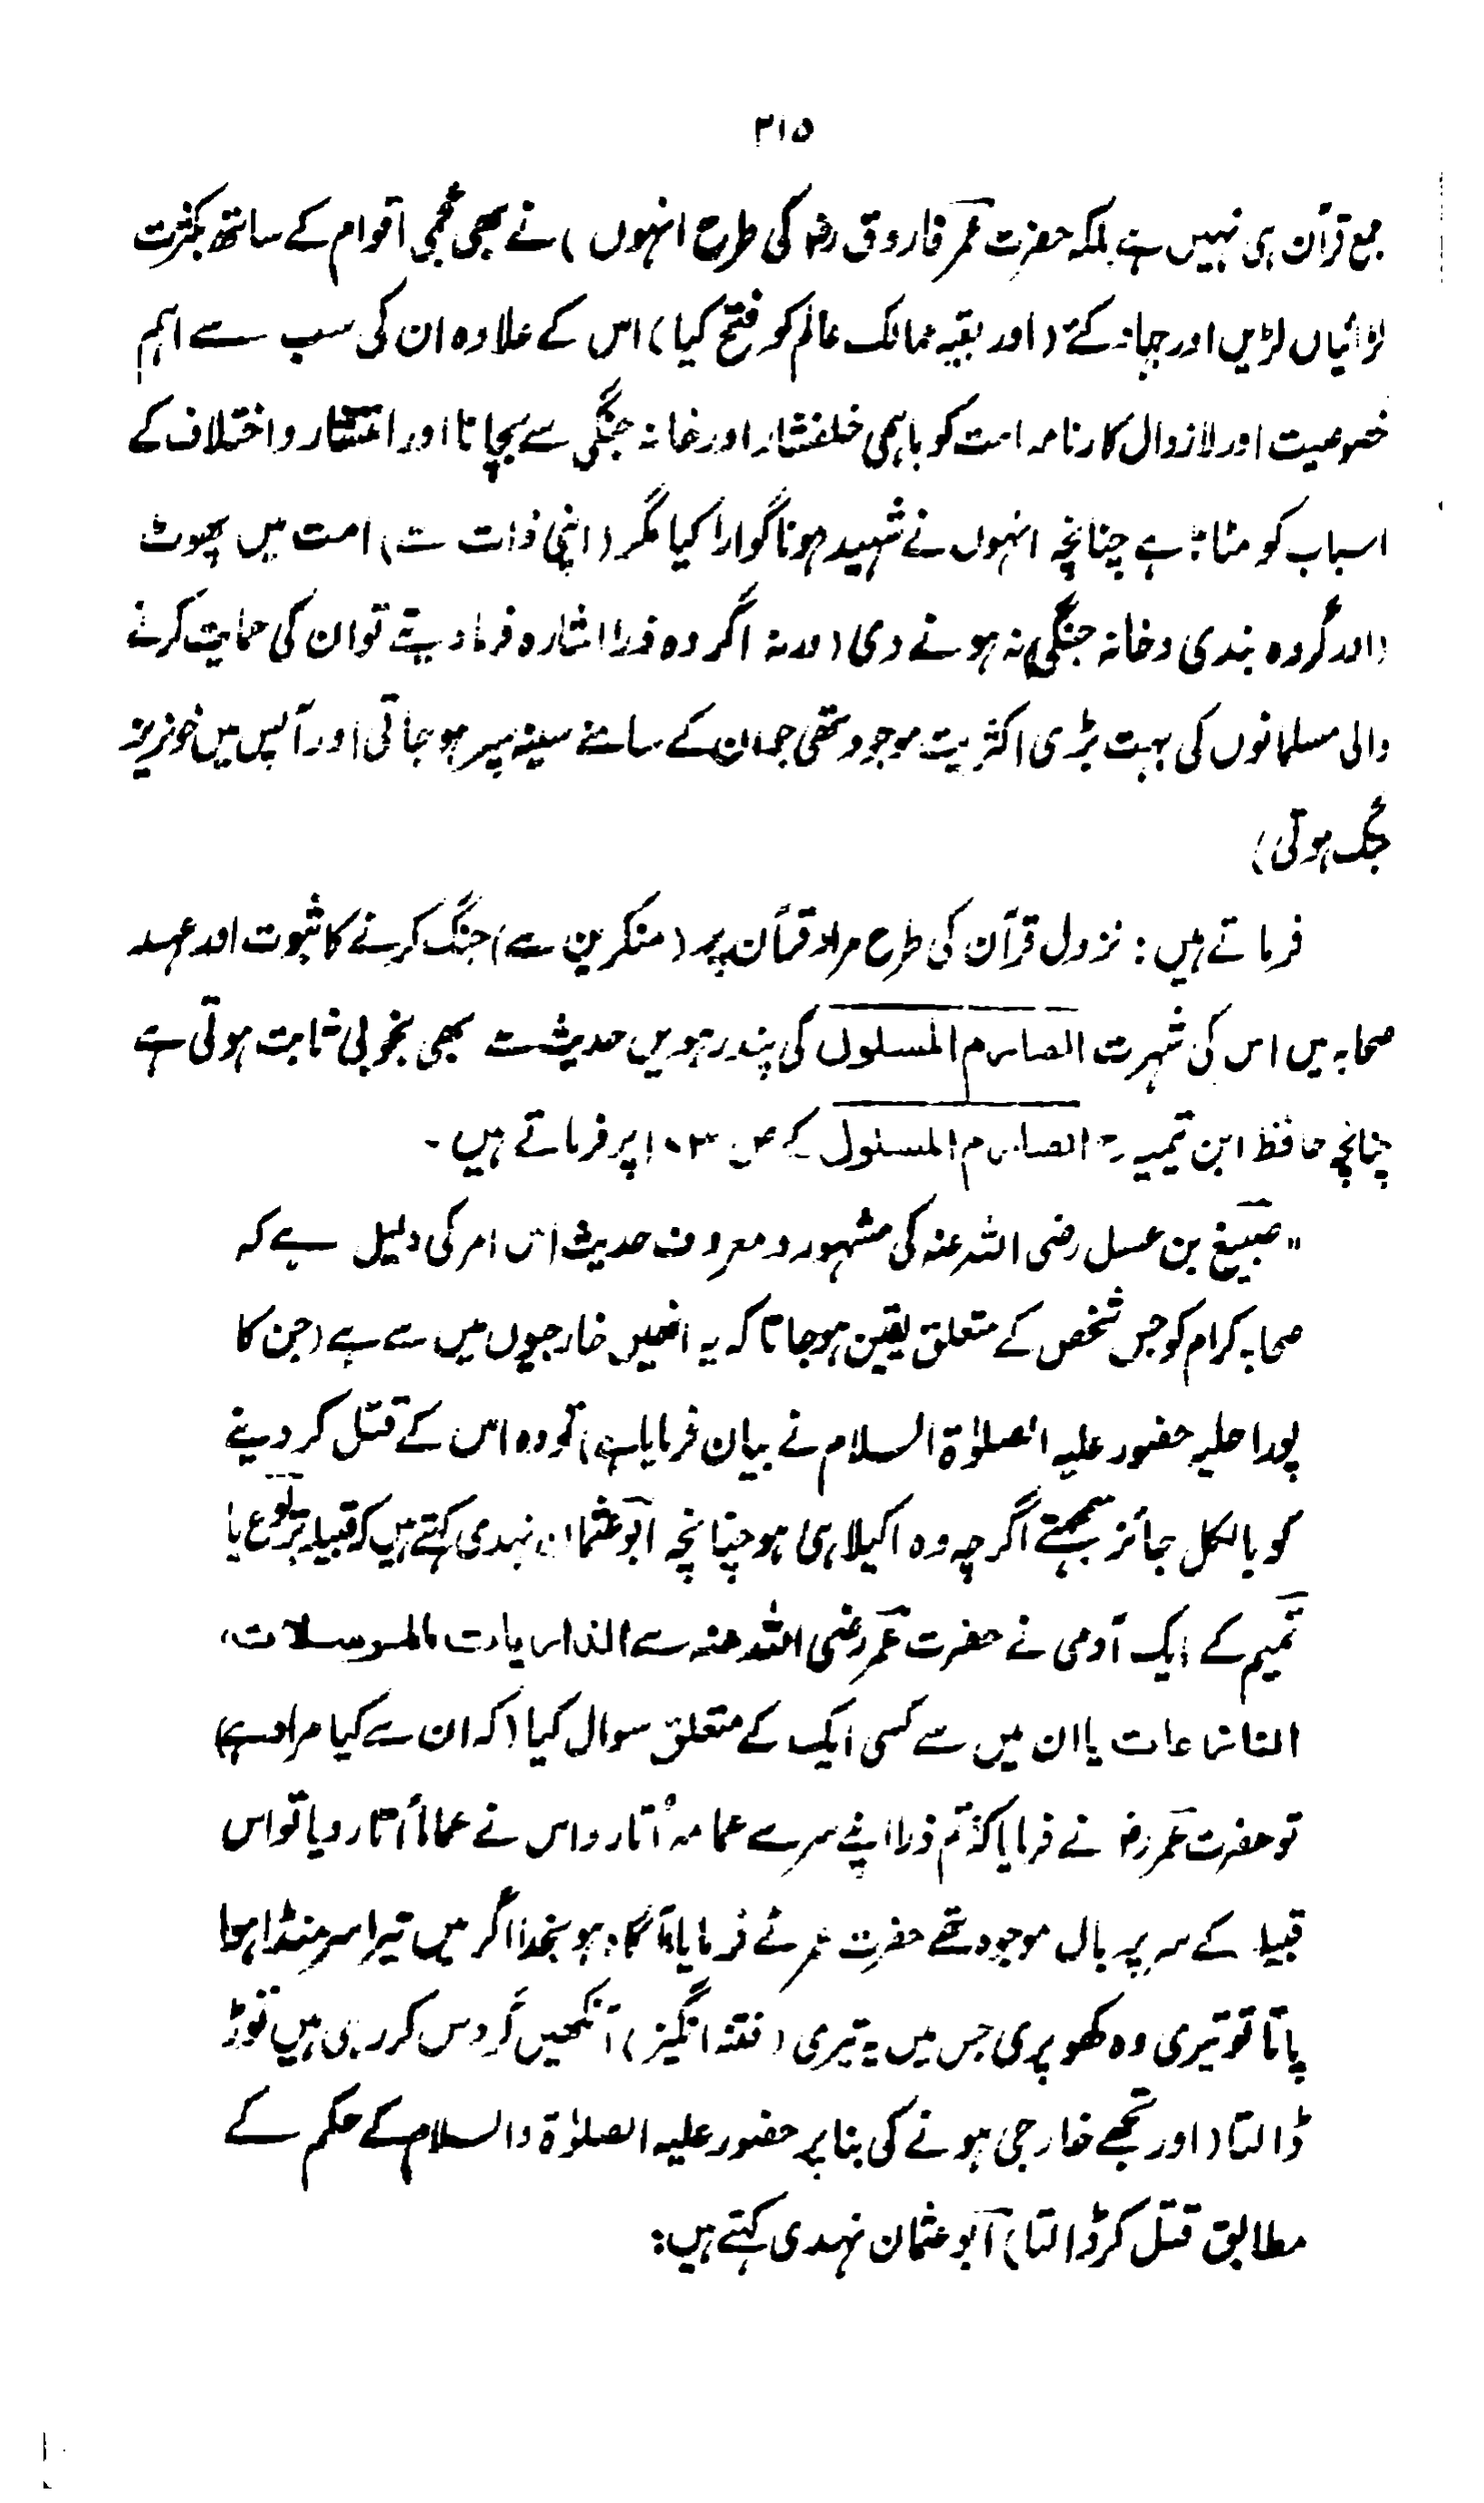 ۳۱۵
جمع قرآن ہی نہیں ہے بلکہ حضرت عمر فاروق رضؓ کی طرح انہوں) نے بھی عجمی اقوام کے ساتھ بکثرت
لڑائیاں لڑیں اور جہاد کئے (اور بقیہ ممالک عالم کو فتح کیا) اس کے علاوہ ان کی سب سے اہم
خصوصیت اور لازوال کارنامہ امت کو باہمی خلفشار اور خانہ جنگی سے بچانا اور انتشار و اختلاف کے
اسباب کو مٹانا ہے چنانچہ انہوں نے شہید ہونا گوارا کیا مگر (اپنی ذات سے) امت میں پھوٹ
(اور گروہ بندی و خانہ جنگی) نہ ہونے دی (ورنہ اگر وہ ذرا اشارہ فرما دیتے تو ان کی حمایت کرنے
والی مسلمانوں کی بہت بڑی اکثریت موجود تھی جو ان کے سامنے سینہ سپر ہو جاتی اور آپس میں خونریز
جنگ ہوتی)
فرماتے ہیں: نزول قرآن کی طرح مراد قرآن پر (منکرین سے) جنگ کرنے کا ثبوت اور عہد
صحابہ میں اس کی شہرت الصارم المسلول کی پندرھویں حدیث سے بھی بخوبی ثابت ہوتی ہے
چنانچہ حافظ ابن تیمیہ رحؒ الصارم المسلول کے ص پر فرماتے ہیں۔
"صبیغ بن عسل رضی اللہ عنہ کی مشہور و معروف حدیث اس امر کی دلیل ہے کہ
صحابہ کرام کو جس شخص کے متعلق یقین ہو جاتا کہ یہ انھیں خارجیوں میں سے ہے (جن کا
پورا حلیہ حضور علیہ الصلوٰۃ السلام نے بیان فرمایا ہے) تو وہ اس کے قتل کر دینے
کو بالکل جائز سمجھتے اگرچہ وہ اکیلا ہی ہو چنانچہ ابو عثمان نہدی کہتے ہیں کہ قبیلہ یربوع یا
تمیم کے ایک آدمی نے حضرت عمر رضی اللہ عنہ سے الذاریات، المرسلات،
النازعات یا ان میں سے کسی ایک کے متعلق سوال کیا (کہ ان سے کیا مراد ہے)
تو حضرت عمر رضؓ نے فرمایا کہ تم ذرا اپنے سر سے عمامہ اُتارو اس نے عمامہ اُتار دیا تو اس
قبیلہ کے سر پر بال موجود تھے حضرت عمر نے فرمایا آگاہ ہو بخدا اگر میں تیرا سر منڈا ہوا
پاتا تو تیری وہ کھوپری جس میں یہ تیری (فتنہ انگیز) آنکھیں گردش کر رہی ہیں توڑ
ڈالتا (اور تجھے خارجی ہونے کی بنا پر حضور علیہ الصلوٰۃ والسلام کے حکم کے
مطابق قتل کر ڈالتا) ابو عثمان نہدی کہتے ہیں: